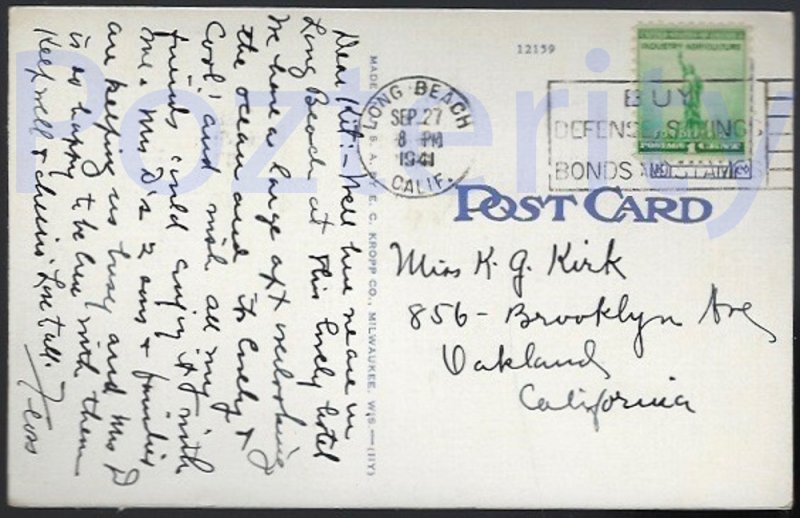 Dear Kit:- Well here we are in
Long Beach at this lovely hotel
We have a large apt overlooking
the ocean and its lovely &
cool and wish all my
friends could enjoy it with
me. Mrs D's 2 sons & families
are keeping us busy and Mrs D
is so happy to be here with them
Keep well & cheerio Love to all.
MADE IN U. S. A. BY E. C. KROPP CO., MILWAUKEE, WIS.—(11Y)
12159
LONG BEACH
SEP 27
8 PM
1941
CALIF.
UNITED STATES OF AMERICA
INDUSTRY AGRICULTURE
POSTAGE 1 CENT
BUY
DEFENSE SAVINGS
BONDS AND STAMPS
POST CARD
Miss K. G. Kirk
856 - Brooklyn Ave
Oakland
California
Pozterity